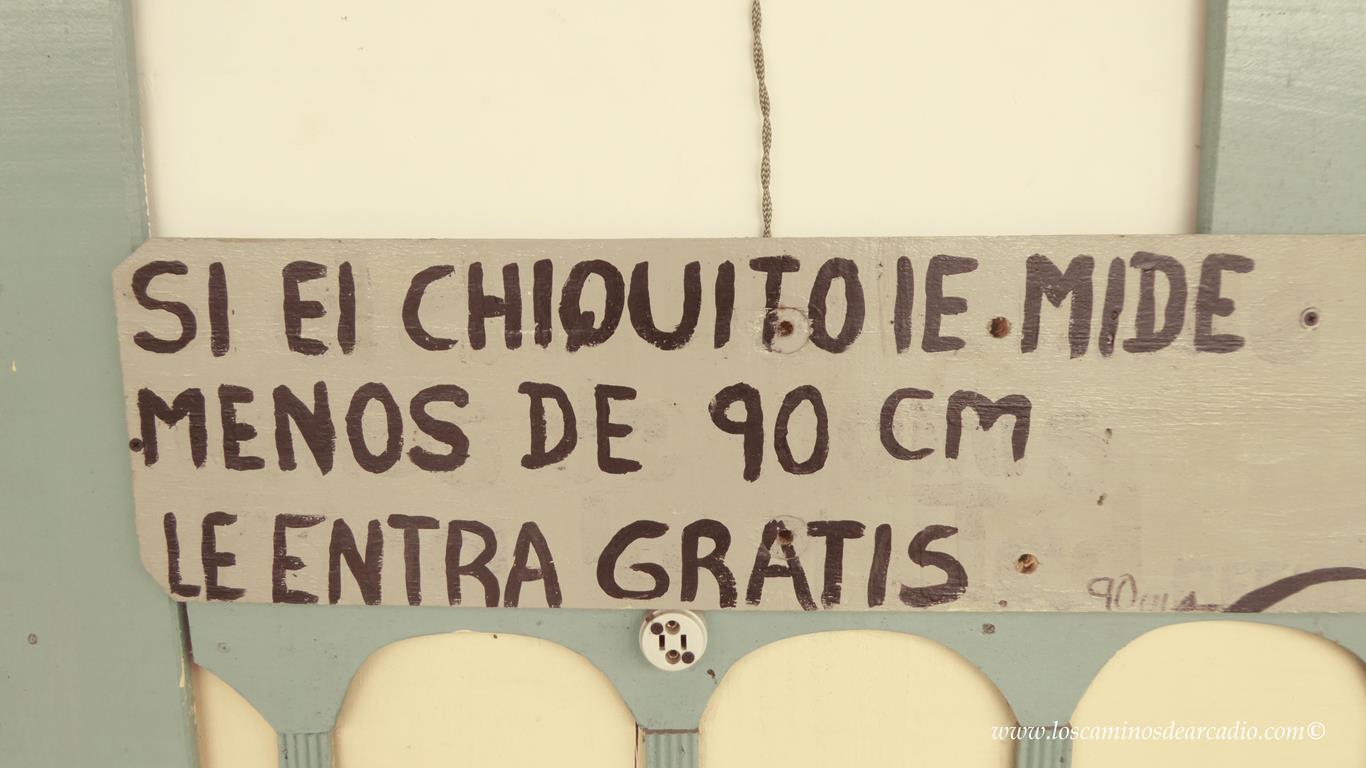 SI El CHIQUITO lE MIDE
MENOS DE 90 CM
LE ENTRA GRATIS
www.loscaminosdearcadio.com©